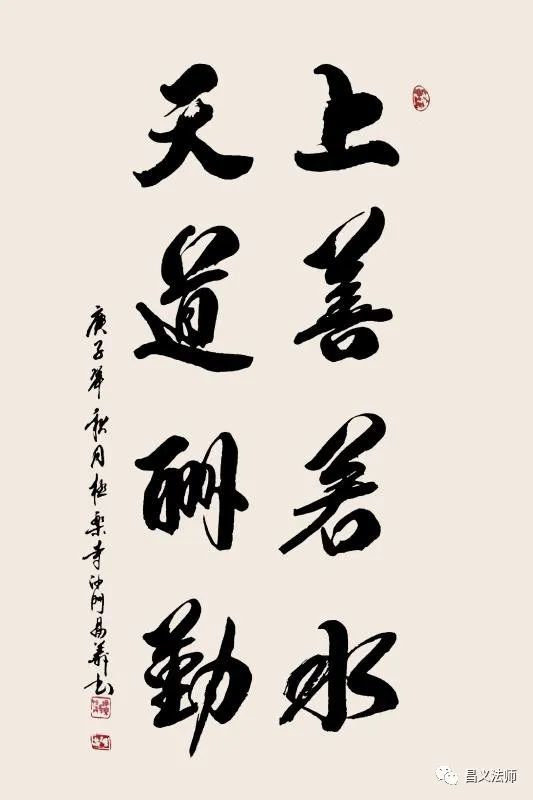 上善若水
天道酬勤
庚子年秋月極樂寺沙門昌義书
昌义法师